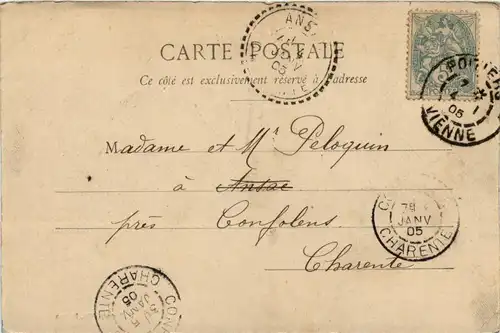 CARTE POSTALE
Ce côté est exclusivement réservé à l'adresse
ANS
JANV
05
POITIERS
05
VIENNE
Madame et Mr Peloquin
à Ansac
près Confolens
Charente
JANV
05
CHARENTE
CON
JANV
05
CHARENTE